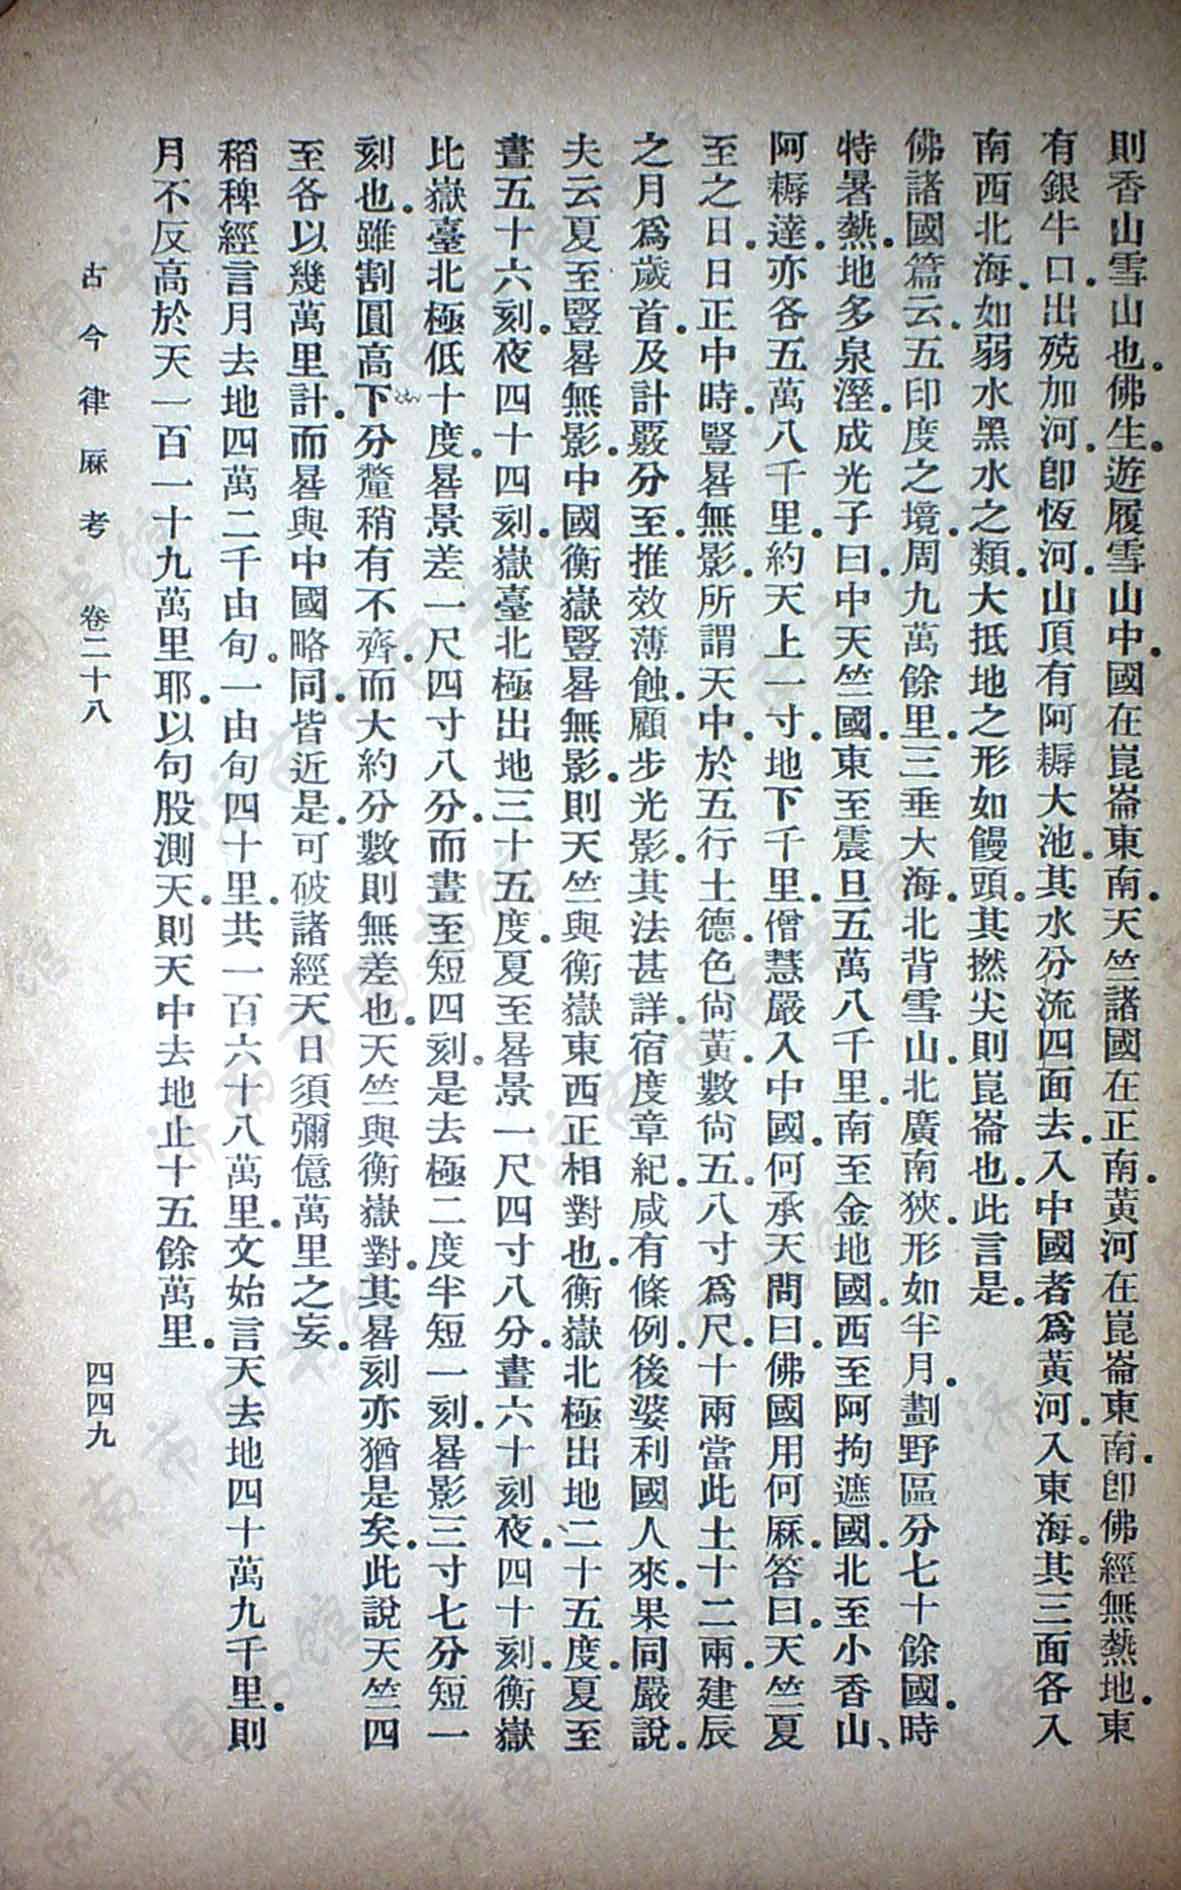 則香山雪山也。佛生遊履雪山。中國在崑崙東南。天竺諸國在正南。黃河在崑崙東南。卽佛經無熱地。東
有銀牛口。出殑加河。卽恆河。山頂有阿耨大池。其水分流四面去。入中國者爲黃河。入東海。其三面各入
南西北海。如弱水黑水之類。大抵地之形如饅頭。其撚尖則崑崙也。此言是。
佛諸國篇云。五印度之境。周九萬餘里。三垂大海。北背雪山。北廣南狹。形如半月。劃野區分七十餘國。時
特暑熱。地多泉溼。成光子曰。中天竺國。東至震旦五萬八千里。南至金地國。西至阿拘遮國。北至小香山、
阿耨達。亦各五萬八千里。約天上一寸。地下千里。僧慧嚴入中國。何承天問曰。佛國用何厤。答曰。天竺夏
至之日。日正中時。豎晷無影。所謂天中。於五行土德。色尙黃。數尙五。八寸爲尺。十兩當此土十二兩。建辰
之月爲歲首。及計覈分至。推效薄蝕。顧步光影。其法甚詳。宿度章紀。咸有條例。後婆利國人來。果同嚴說。
夫云夏至豎晷無影。中國衡嶽豎晷無影。則天竺與衡嶽東西正相對也。衡嶽北極出地二十五度。夏至
晝五十六刻。夜四十四刻。嶽臺北極出地三十五度。夏至晷景一尺四寸八分。晝六十刻。夜四十刻。衡嶽
比嶽臺北極低十度。晷景差一尺四寸八分。而晝至短四刻。是去極二度半短一刻。晷影三寸七分短一
刻也。雖割圓高下分釐稍有不齊。而大約分數則無差也。天竺與衡嶽對。其晷刻亦猶是矣。此說天竺四
至各以幾萬里計。而晷與中國略同。皆近是。可破諸經天日須彌億萬里之妄。
稻稗經言月去地四萬二千由旬。一由旬四十里。共一百六十八萬里。文始言天去地四十萬九千里。則
月不反高於天一百一十九萬里耶。以句股測天。則天中去地止十五餘萬里。
古今律厤考 卷二十八 四四九